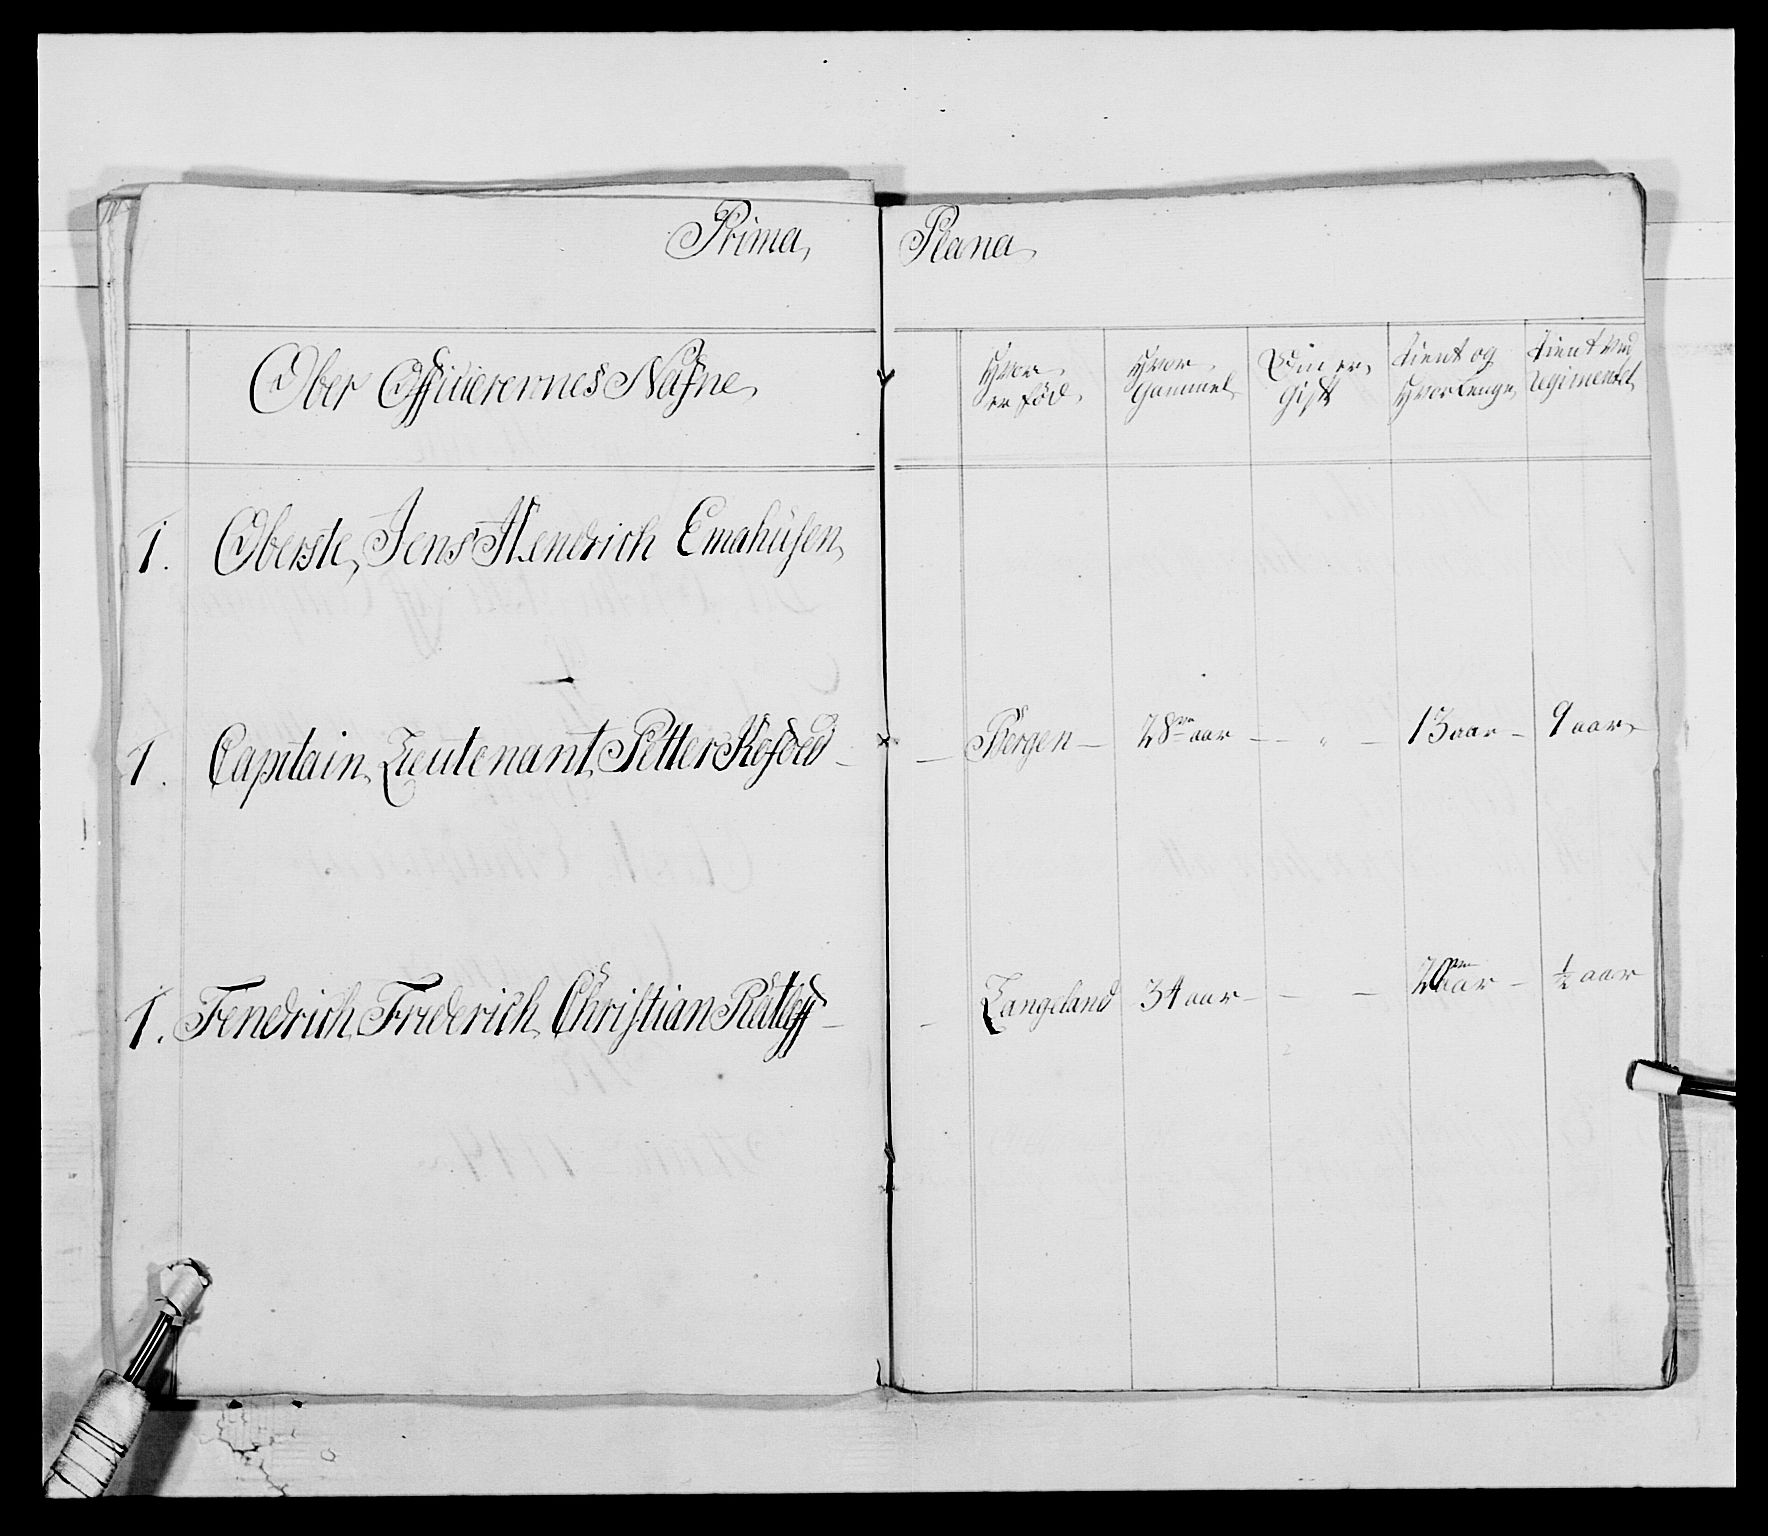 Prima Plana
Ober Officierernes Nafne
Hvor er föd
Hvor Gammel
Om er Gift
Tient og Hvor Lenge
Tient ved Regimentet
1. Oberste Jens Hendrich Emahüsen
1. Capitain Lieutenant Petter Kofoed — Bergen — 28 aar — „ — 13 aar — 9 aar
1. Fendrich Friderich Christian Ratleff — Langeland 34 aar — — 20 aar — ½ aar